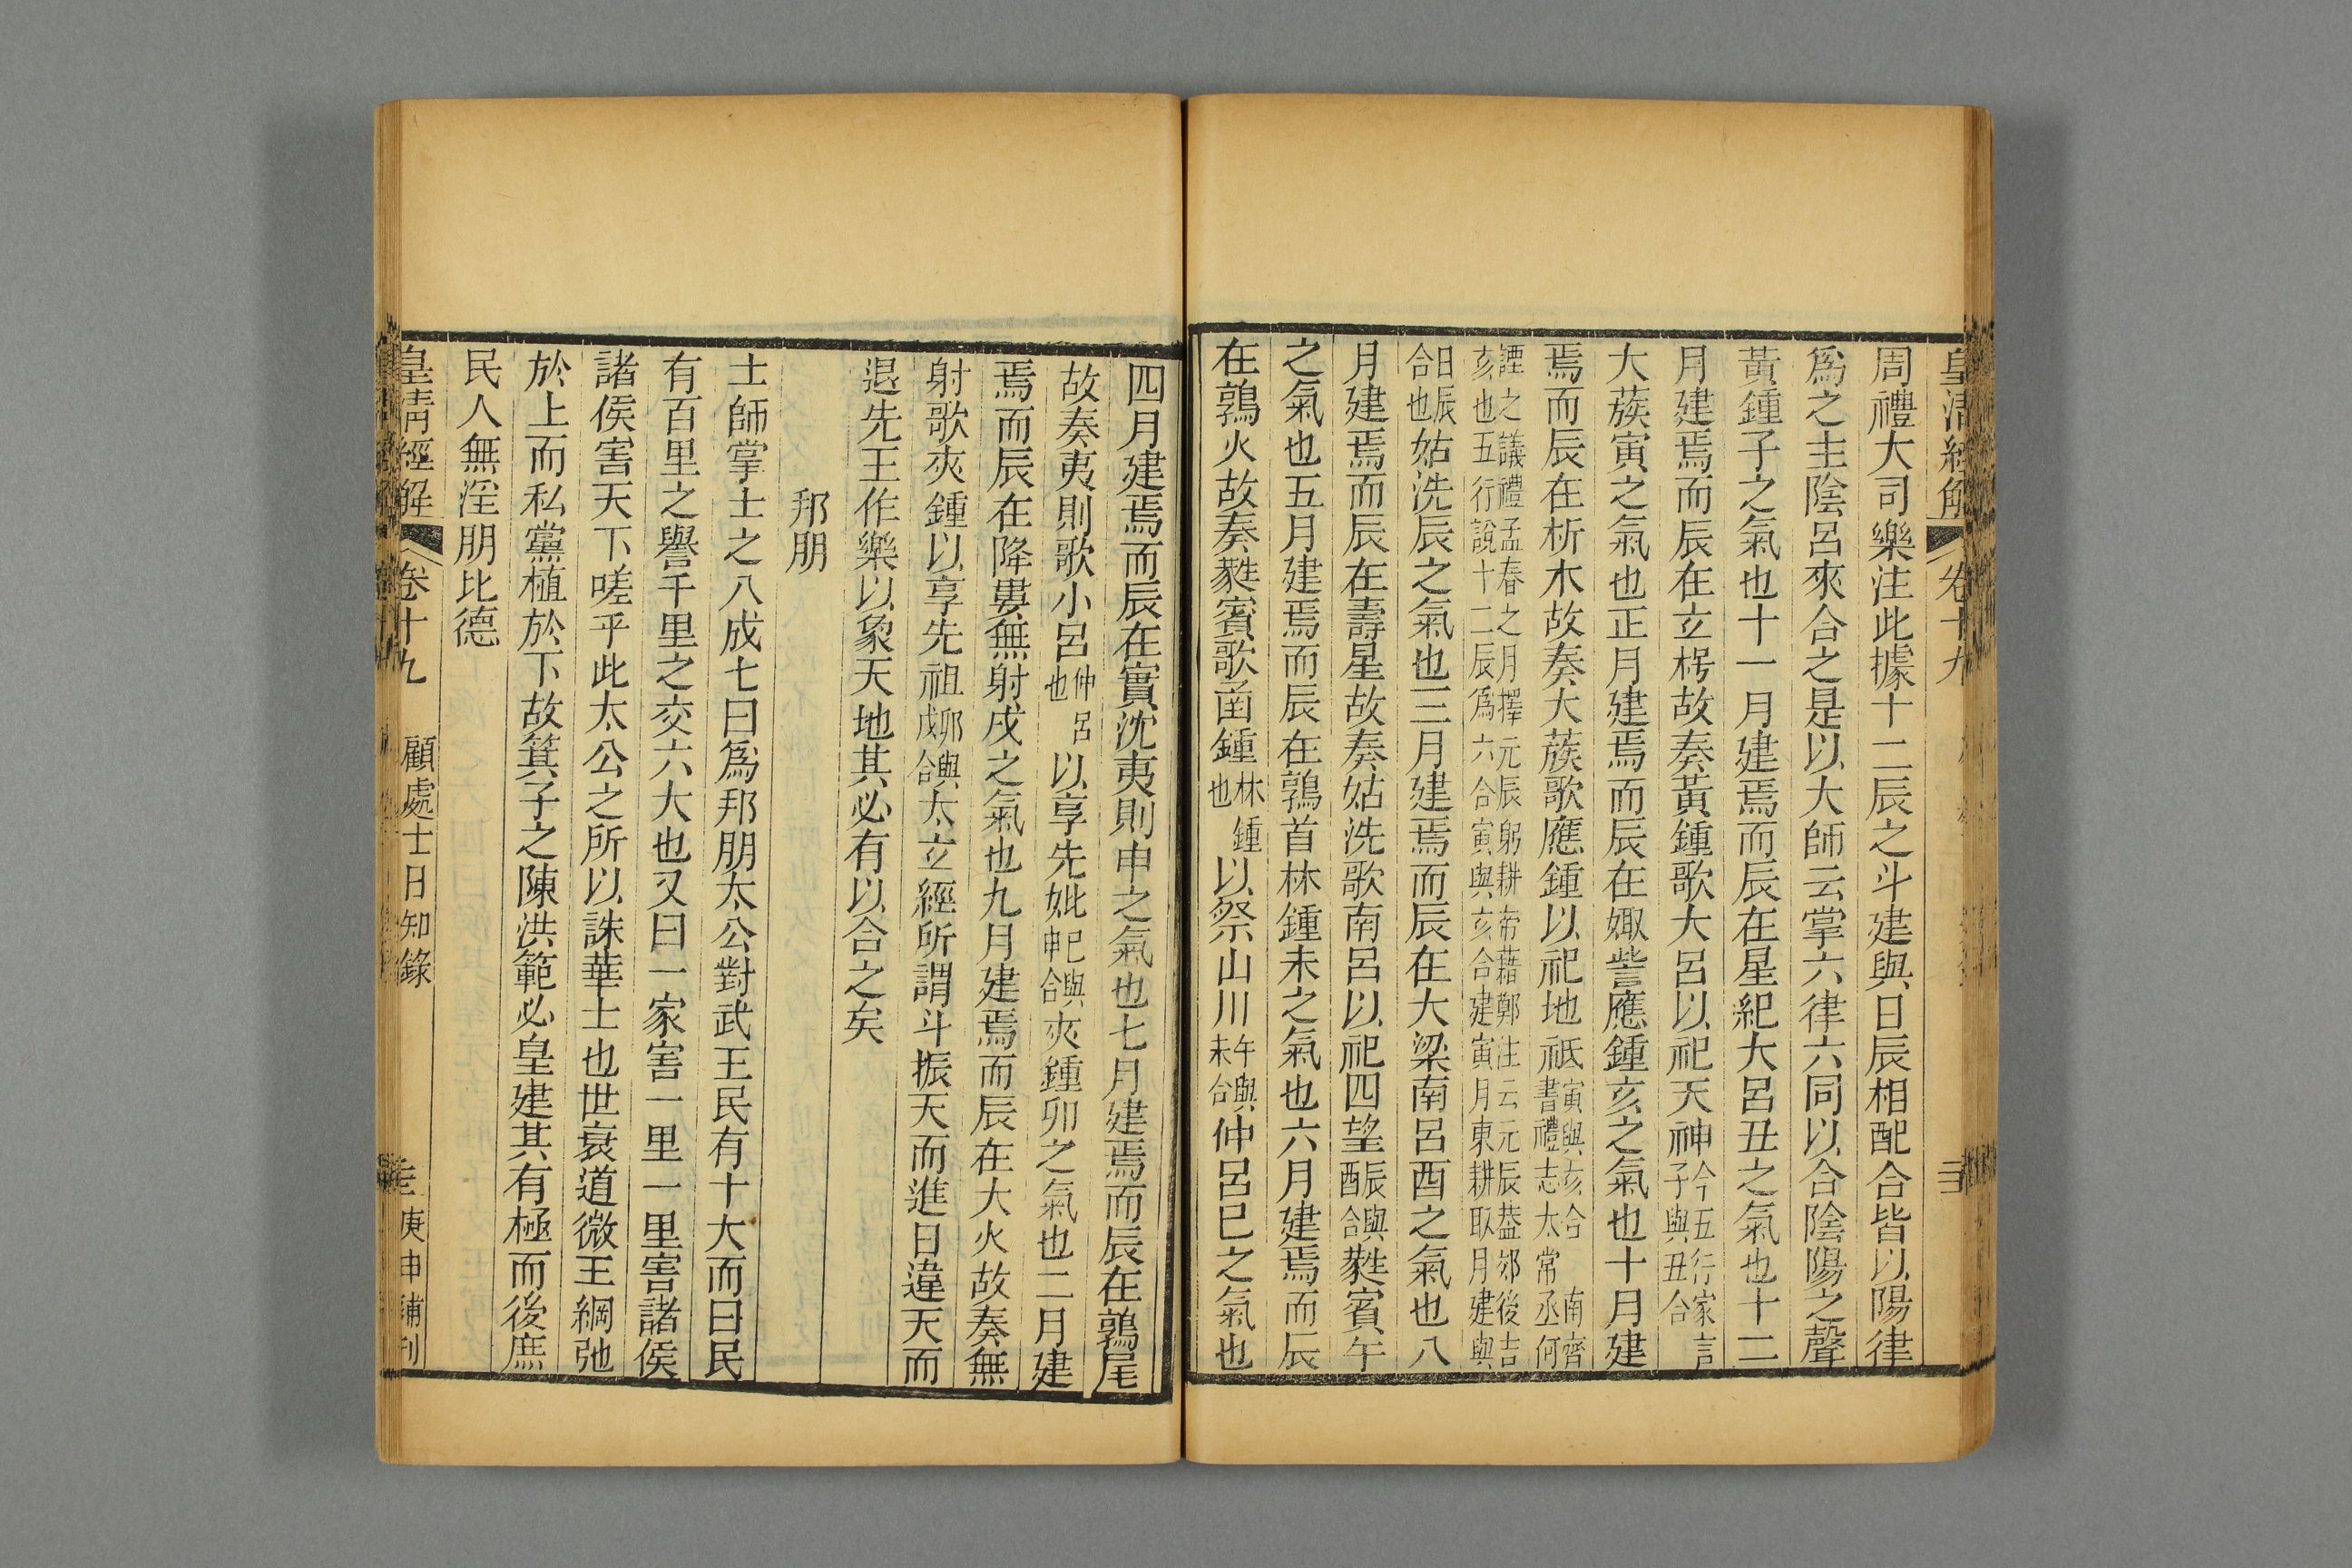 皇清經解 卷十九 三
周禮大司樂注此據十二辰之斗建與日辰相配合皆以陽律
爲之主陰呂來合之是以大師云掌六律六同以合陰陽之聲
黃鍾子之氣也十一月建焉而辰在星紀大呂丑之氣也十二
月建焉而辰在玄枵故奏黃鍾歌大呂以祀天神今五行家言子與丑合
大蔟寅之氣也正月建焉而辰在娵訾應鍾亥之氣也十月建
焉而辰在析木故奏大蔟歌應鍾以祀地祗寅與亥合 南齊書禮志太常丞何
諲之議禮孟春之月擇元辰躬耕帝藉鄭注云元辰葢郊後吉亥也五行說十二辰爲六合寅與亥合建寅月東耕取月建與
日辰合也姑洗辰之氣也三月建焉而辰在大梁南呂酉之氣也八
月建焉而辰在壽星故奏姑洗歌南呂以祀四望辰與酉合蕤賓午
之氣也五月建焉而辰在鶉首林鍾未之氣也六月建焉而辰
在鶉火故奏蕤賓歌函鍾林鍾也以祭山川午與未合仲呂巳之氣也
四月建焉而辰在實沈夷則申之氣也七月建焉而辰在鶉尾
故奏夷則歌小呂仲呂也以享先妣巳與申合夾鍾卯之氣也二月建
焉而辰在降婁無射戌之氣也九月建焉而辰在大火故奏無
射歌夾鍾以享先祖卯與戌合太玄經所謂斗振天而進日違天而
退先王作樂以象天地其必有以合之矣
邦朋
士師掌士之八成七曰爲邦朋太公對武王民有十大而曰民
有百里之譽千里之交六大也又曰一家害一里一里害諸侯
諸侯害天下嗟乎此太公之所以誅華士也世衰道微王綱弛
於上而私黨植於下故箕子之陳洪範必皇建其有極而後庶
民人無淫朋比德
皇清經解 卷十九 顧處士日知錄 庚申補刊